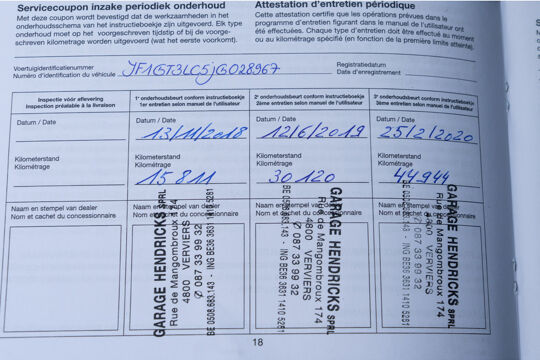 Servicecoupon inzake periodiek onderhoud
Met deze coupon wordt bevestigd dat de werkzaamheden in het
onderhoudsschema van het instructieboekje zijn uitgevoerd. Elk type
onderhoud moet op het voorgeschreven tijdstip of bij de voorge-
schreven kilometrage worden uitgevoerd (wat het eerste voorkomt).
Attestation d'entretien périodique
Cette attestation certifie que les opérations prévues dans le
programme d'entretien figurant dans le manuel de l'utilisateur ont
été effectuées. Chaque type d'entretien doit être effectué au moment
ou au kilométrage spécifié (en fonction de la première limite atteinte).
Voertuigidentificatienummer
Numéro d'identification du véhicule
Registratiedatum
Date d'enregistrement
Inspectie vóór aflevering
Inspection préalable à la livraison
Datum / Date
Kilometerstand
Kilométrage
Naam en stempel van dealer
Nom et cachet du concessionnaire
1e onderhoudsbeurt conform instructieboekje
1er entretien selon manuel de l'utilisateur
Datum / Date
13/11/2018
Kilometerstand
Kilométrage
15 811
Naam en stempel van dealer
Nom et cachet du concessionnaire
GARAGE HENDRICKS SPRL
Rue de Mangombroux 174
4800 VERVIERS
✆ 087 33 99 32
2e onderhoudsbeurt conform instructieboekje
2ème entretien selon manuel de l'utilisateur
Datum / Date
12/6/2019
Kilometerstand
Kilométrage
30 120
Naam en stempel van dealer
Nom et cachet du concessionnaire
GARAGE HENDRICKS SPRL
Rue de Mangombroux 174
4800 VERVIERS
✆ 087 33 99 32
3e onderhoudsbeurt conform instructieboekje
3ème entretien selon manuel de l'utilisateur
Datum / Date
25/2/2020
Kilometerstand
Kilométrage
44944
Naam en stempel van dealer
Nom et cachet du concessionnaire
GARAGE HENDRICKS SPRL
Rue de Mangombroux 174
4800 VERVIERS
✆ 087 33 99 32
18